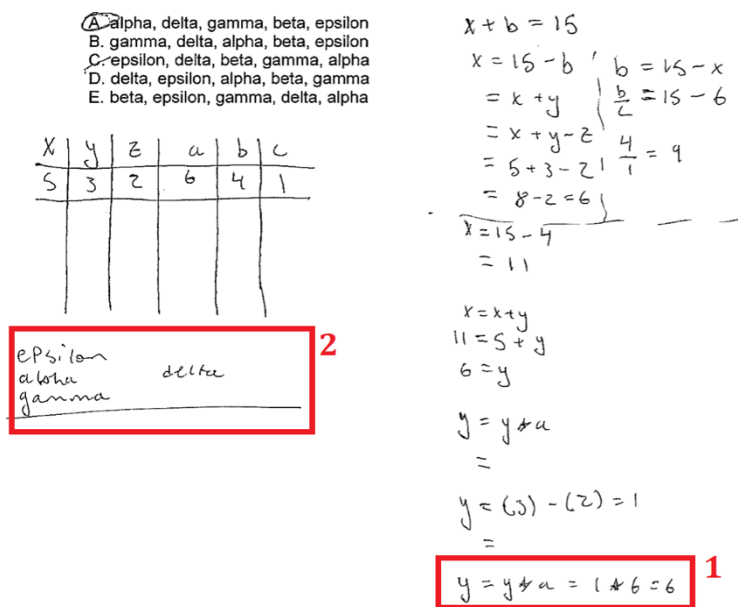 A. alpha, delta, gamma, beta, epsilon
B. gamma, delta, alpha, beta, epsilon
C. epsilon, delta, beta, gamma, alpha
D. delta, epsilon, alpha, beta, gamma
E. beta, epsilon, gamma, delta, alpha
x y z a b c
5 3 2 6 4 1
epsilon
alpha delta
gamma
2
x + b = 15
x = 15 - b
= x + y
= x + y - z
= 5 + 3 - 2
= 8 - 2 = 6
b = 15 - x
b/c = 15 - 6
4/1 = 9
x = 15 - 4
= 11
x = x + y
11 = 5 + y
6 = y
y = y * a
=
y = (3) - (2) = 1
=
y = y * a = 1 * 6 = 6
1